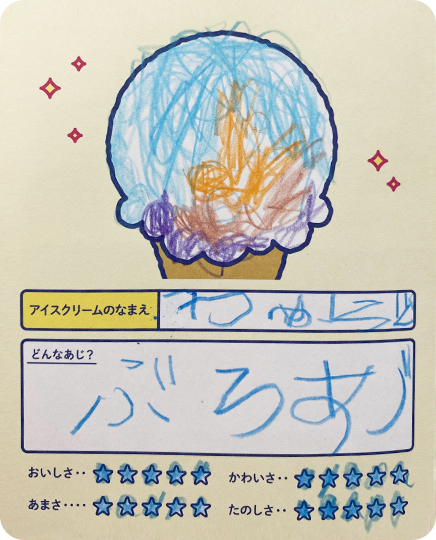 アイスクリームのなまえ
どんなあじ?
ぶろあ
おいしさ‥
かわいさ‥
あまさ‥‥
たのしさ‥